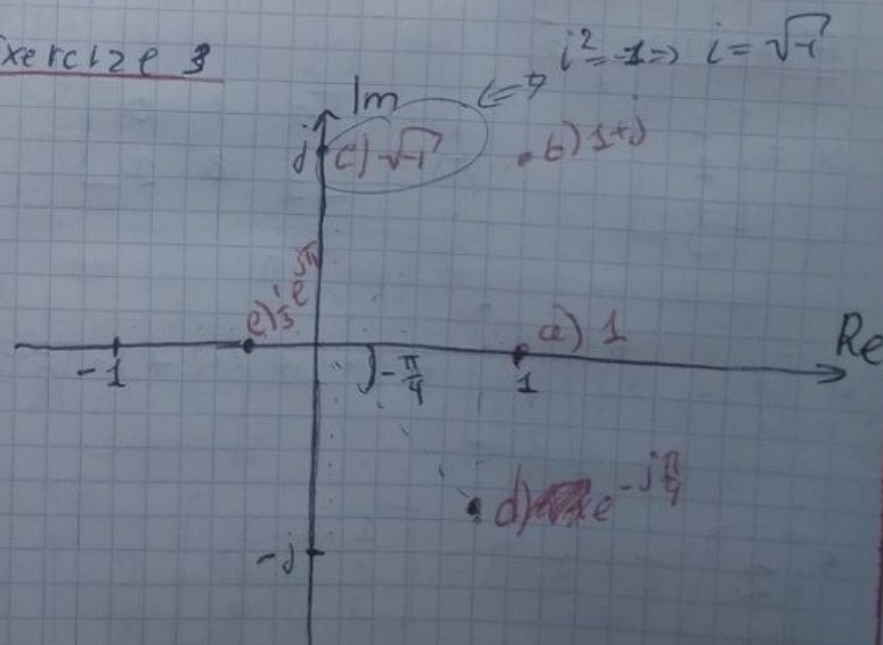 xercize 3
i² = -1 => i = √-1
Im
<=>
j
c) √-1
b) 1+j
e) 1/3 e^jπ
a) 1
Re
-1
-π/4
1
d) e^-jπ/4
-j